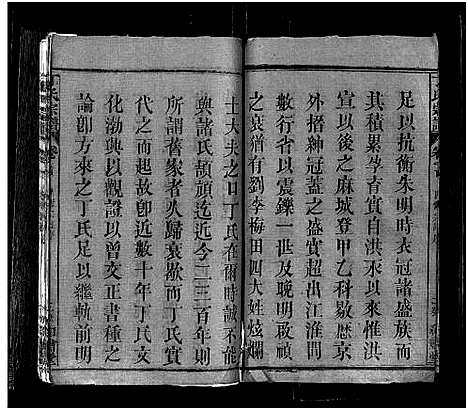 足以抗衡朱明時衣冠諸盛族而
其積累孕育自洪永以來惟洪
宣以後之麻城登甲乙科歇歷京
外搢紳冠蓋之盛實超出江淮間
數行省以震鑠一世及晚明啟禎
之衰猶有劉李梅田四大姓炫爛
士大夫之口丁氏在爾時誠不能
與諸氏頡頏迄近今二三百年則
所謂舊家者久歸衰歇而丁氏實
代之而起故卽近數十年丁氏文
化勃興以觀證以曾文正書種之
論卽方來之丁氏足以繼軌前明